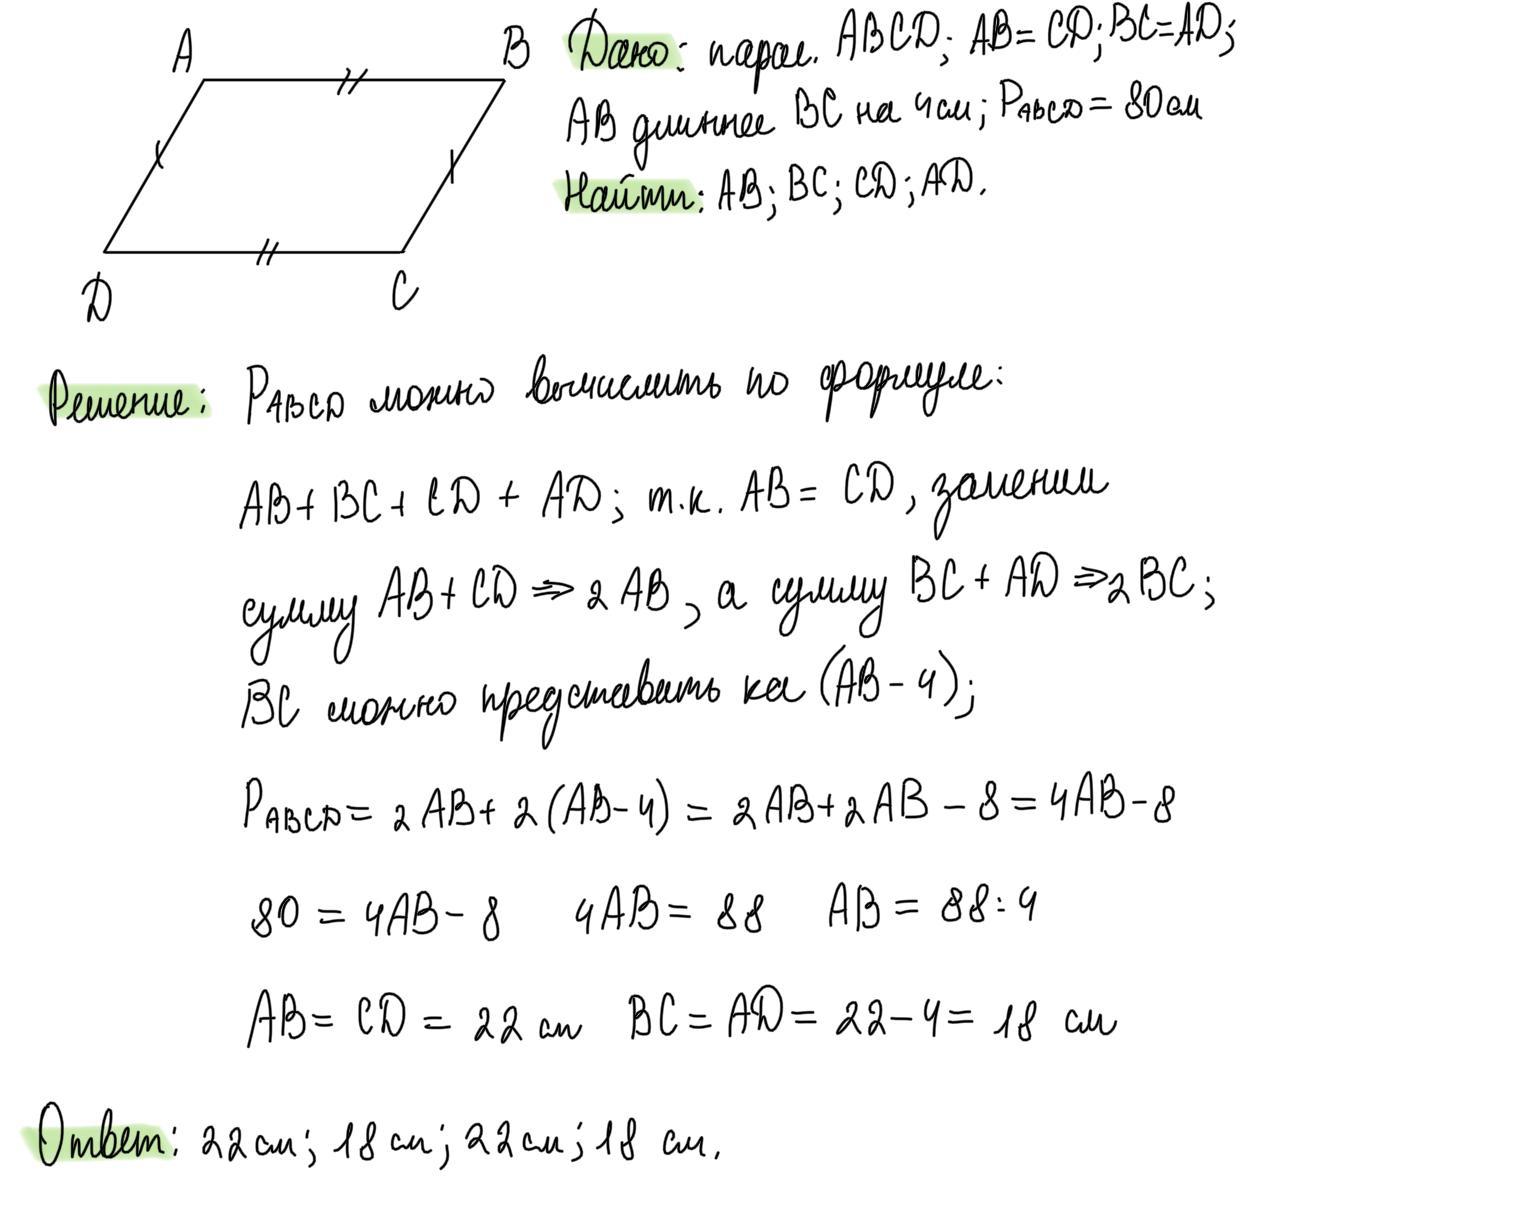 A
B
D
C
Дано: парал. ABCD; AB = CD; BC = AD;
AB длиннее BC на 4 см; PABCD = 80 см
Найти: AB; BC; CD; AD.
Решение: PABCD можно вычислить по формуле:
AB + BC + CD + AD; т.к. AB = CD, заменим
сумму AB + CD ⇒ 2 AB, а сумму BC + AD ⇒ 2 BC;
BC можно представить ка (AB - 4);
PABCD = 2 AB + 2 (AB - 4) = 2 AB + 2 AB - 8 = 4AB - 8
80 = 4AB - 8 4AB = 88 AB = 88 : 4
AB = CD = 22 см BC = AD = 22 - 4 = 18 см
Ответ: 22 см; 18 см; 22 см; 18 см.